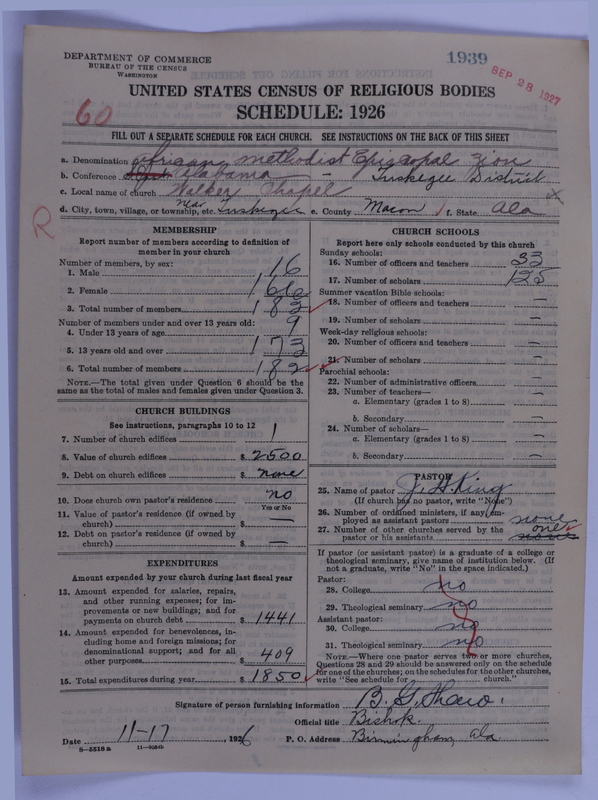 DEPARTMENT OF COMMERCE
BUREAU OF THE CENSUS
WASHINGTON
1939
SEP 28 1927
60
UNITED STATES CENSUS OF RELIGIOUS BODIES
SCHEDULE: 1926
FILL OUT A SEPARATE SCHEDULE FOR EACH CHURCH. SEE INSTRUCTIONS ON THE BACK OF THIS SHEET
a. Denomination African Methodist Episcopal Zion
b. Conference Alabama - Tuskegee District
c. Local name of church Walker Chapel
d. City, town, village, or township, etc. near Tuskegee e. County Macon f. State Ala
R
MEMBERSHIP
Report number of members according to definition of member in your church
Number of members, by sex:
1. Male 16
2. Female 166
3. Total number of members 182
Number of members under and over 13 years old:
4. Under 13 years of age 9
5. 13 years old and over 173
6. Total number of members 182
NOTE.—The total given under Question 6 should be the same as the total of males and females given under Question 3.
CHURCH BUILDINGS
See instructions, paragraphs 10 to 12
7. Number of church edifices 1
8. Value of church edifices $ 2500
9. Debt on church edifices $ none
10. Does church own pastor's residence no
Yes or No
11. Value of pastor's residence (if owned by church) $ —
12. Debt on pastor's residence (if owned by church) $ —
EXPENDITURES
Amount expended by your church during last fiscal year
13. Amount expended for salaries, repairs, and other running expenses; for improvements or new buildings; and for payments on church debt $ 1441
14. Amount expended for benevolences, including home and foreign missions; for denominational support; and for all other purposes $ 409
15. Total expenditures during year $ 1850
CHURCH SCHOOLS
Report here only schools conducted by this church
Sunday schools:
16. Number of officers and teachers 33
17. Number of scholars 125
Summer vacation Bible schools:
18. Number of officers and teachers —
19. Number of scholars —
Week-day religious schools:
20. Number of officers and teachers —
21. Number of scholars —
Parochial schools:
22. Number of administrative officers —
23. Number of teachers—
a. Elementary (grades 1 to 8) —
b. Secondary —
24. Number of scholars—
a. Elementary (grades 1 to 8) —
b. Secondary —
PASTOR
25. Name of pastor J. H. King
(If church has no pastor, write "None")
26. Number of ordained ministers, if any, employed as assistant pastors none
27. Number of other churches served by the pastor or his assistants one none
If pastor (or assistant pastor) is a graduate of a college or theological seminary, give name of institution below. (If not a graduate, write "No" in the space indicated.)
Pastor:
28. College no
29. Theological seminary no
Assistant pastor:
30. College no
31. Theological seminary no
NOTE.—Where one pastor serves two or more churches, Questions 28 and 29 should be answered only on the schedule for one of the churches; on the schedules for the other churches, write "See schedule for church."
Signature of person furnishing information B. G. Shaw.
Official title Bishop.
Date 11-17, 1926 P. O. Address Birmingham, Ala
8—5518a